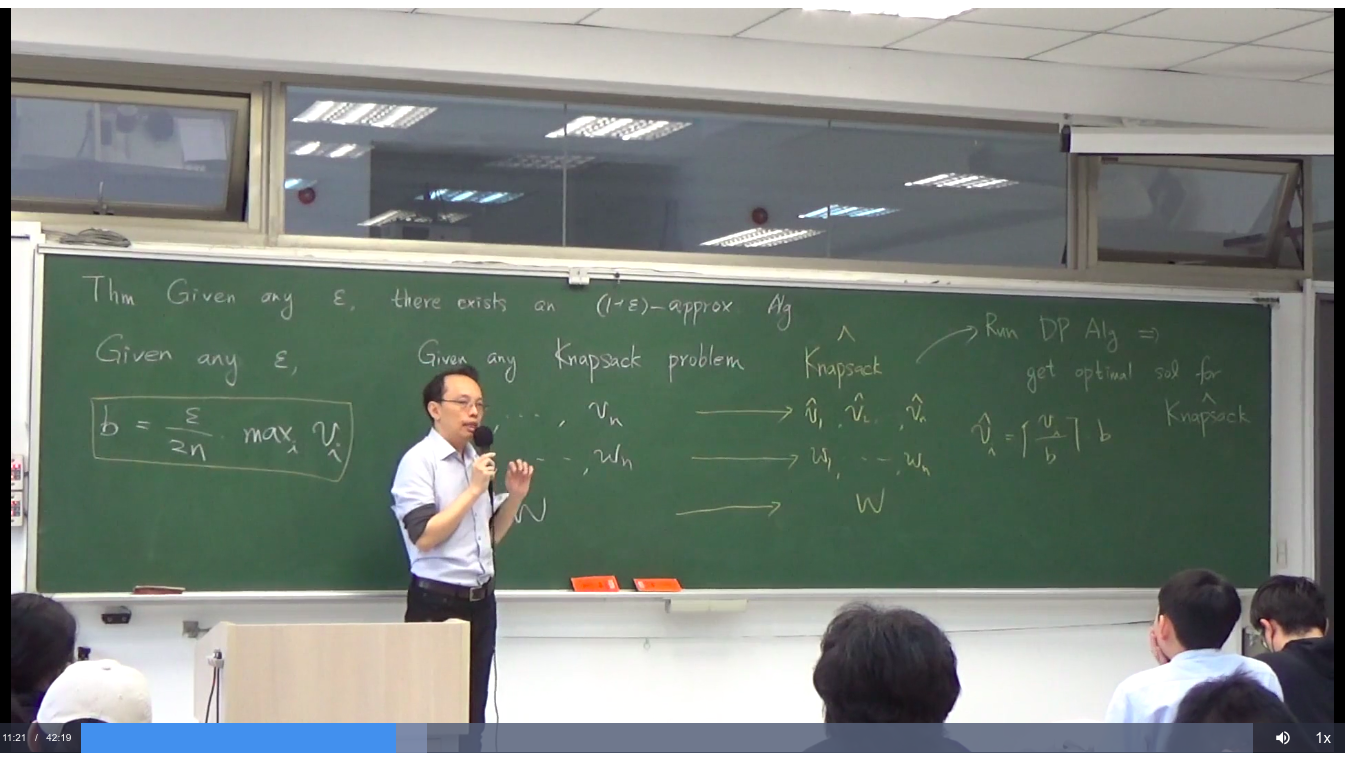 Thm Given any ε, there exists an (1+ε)-approx Alg
Given any ε,
b = ε/2n · max_i v_i
Given any Knapsack problem
, ... , v_n → v̂_1, v̂_2, ..., v̂_n
- - - , w_n → w_1, - - -, w_n
W → W
^
Knapsack
Run DP Alg ⇒
get optimal sol for
Knaps^ack
v̂_i = ⌈v_i/b⌉ · b
11:21 / 42:19
1x